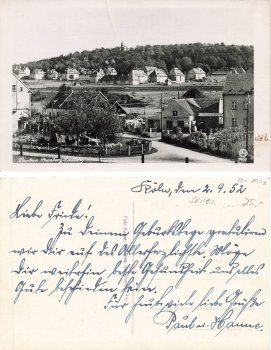 Köln, den 2.9.52
25,-
Liebe Friedel!
Zu deinem Geburtstage gratulieren
wir Dir auf das Allerherzlichste. Möge
Dir weiterhin beste Gesundheit u. alles
Gute beschieden sein.
Für heute viele liebe Grüße
Paul u. Hanne.